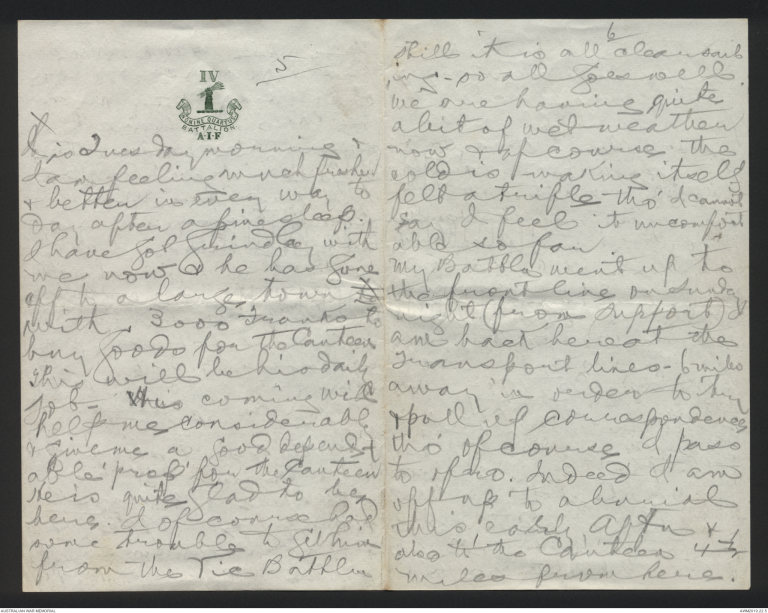 5
IV
1
UNITE QUARTUS
BATTALION.
A.I.F
It is Tuesday morning &
I am feeling much fresher
& better in every way to
day after a fine sleep.
I have got Grindley with
me now & he has gone
off to a large town
with 3000 Franks to
buy goods for the Canteen
This will be his daily
job - His coming will
help me considerably
& give me a good depend
able 'prop' for the Canteen
He is quite glad to be
here. I of course had
some trouble to get him
from the Tie Battln
6
still it is all clear sail
ing - so all goes well.
We are having quite
a bit of wet weather
now & of course the
cold is making itself
felt a trifle tho' I cannot
say I feel it uncomfort
able so far
My Battln went up to
the front line on Sunday
night (from support) I
am back here at the
Transport lines - 6 miles
away in order to try
& pull up correspondence
tho' of course I pass
to & fro. Indeed I am
off up to a burial
this early aftn &
also to the Canteen 4 1/2
miles from here.
AUSTRALIAN WAR MEMORIAL